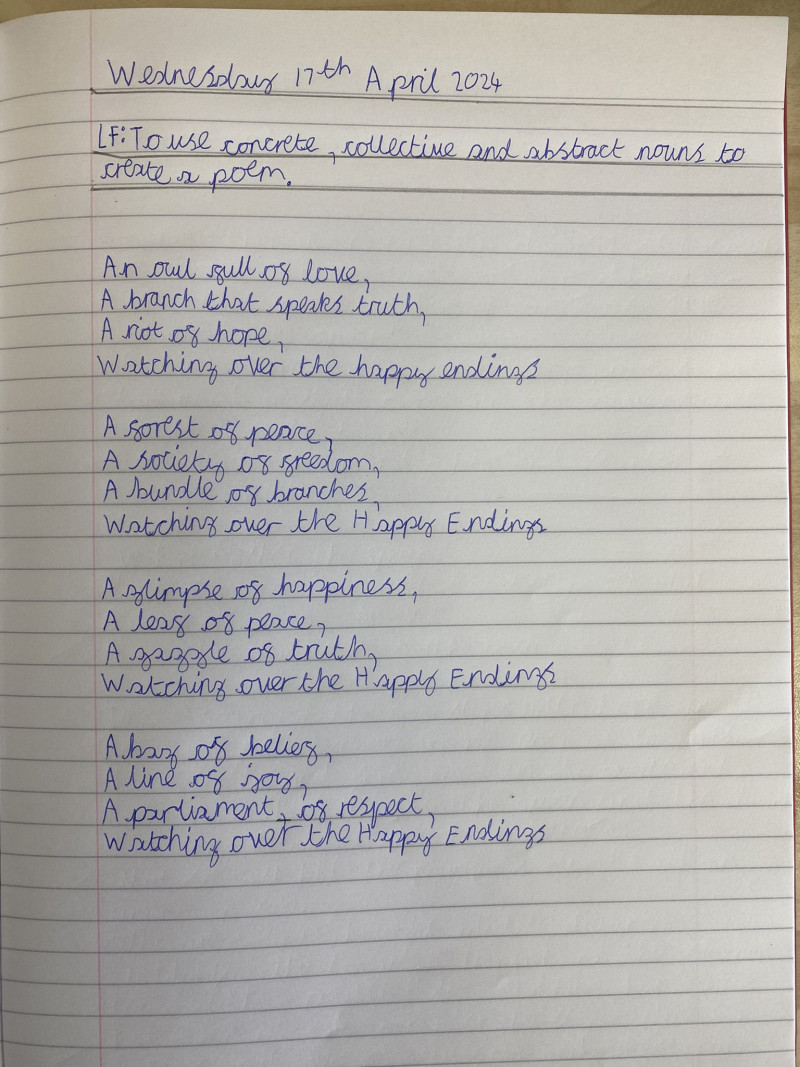 Wednesday 17th April 2024
LF: To use concrete, collective and abstract nouns to
create a poem.
An owl full of love,
A branch that speaks truth,
A riot of hope,
Watching over the happy endings
A forest of peace,
A society of freedom,
A bundle of branches,
Watching over the Happy Endings
A glimpse of happiness,
A leaf of peace,
A gaggle of truth,
Watching over the Happy Endings
A bag of belief,
A line of joy,
A parliament, of respect,
Watching over the Happy Endings